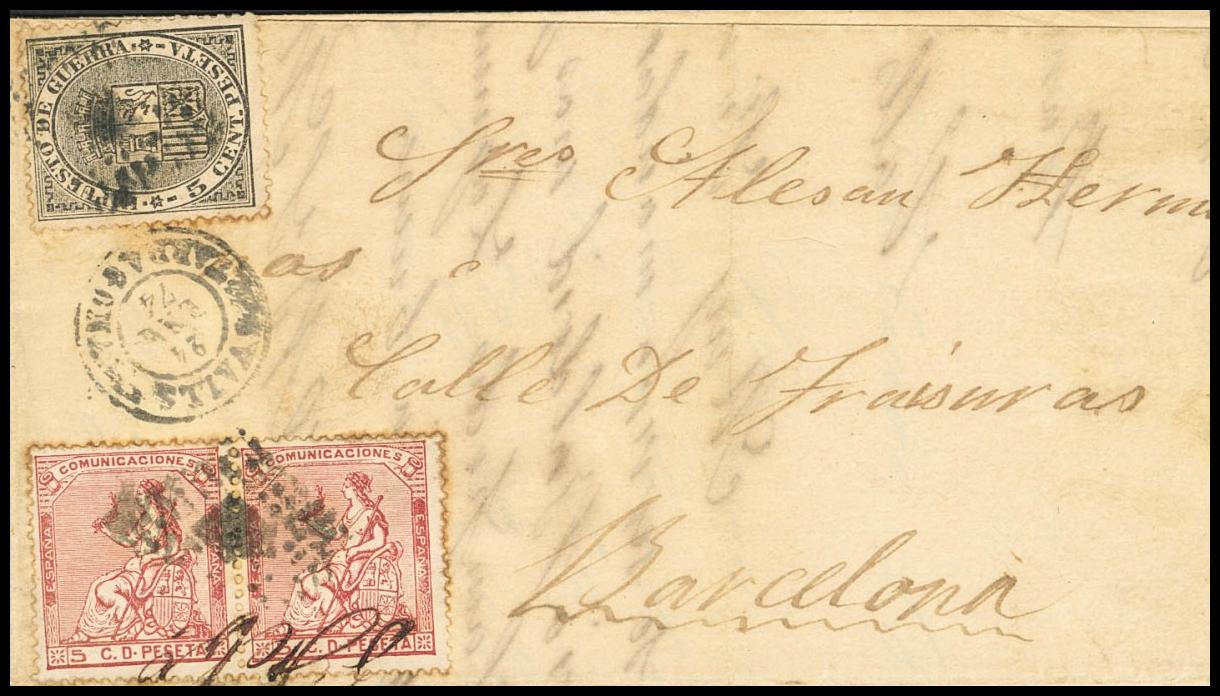 IMPUESTO DE GUERRA.
5 CENT. PESETA
Sres Alesan Herm
as
Calle De Fraisuras
Barcelona
TARRAGONA
24
74
COMUNICACIONES COMUNICACIONES
ESPAÑA ESPAÑA ESPAÑA ESPAÑA
5 C. D. PESETA 5 C. D. PESETA